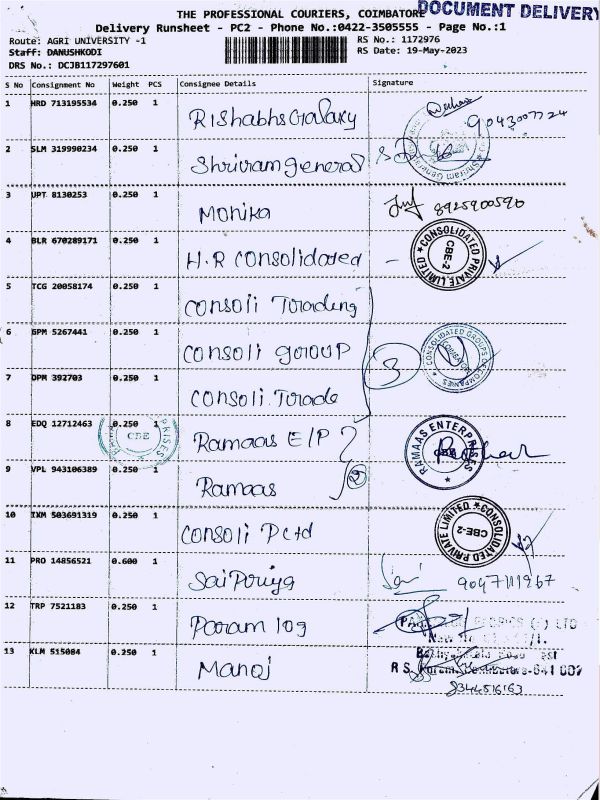 THE PROFESSIONAL COURIERS, COIMBATORE
DOCUMENT DELIVERY
Delivery Runsheet - PC2 - Phone No.:0422-3505555 - Page No.:1
Route: AGRI UNIVERSITY -1
RS No.: 1172976
Staff: DANUSHKODI
RS Date: 19-May-2023
DRS No.: DCJB117297601
S No Consignment No Weight PCS Consignee Details Signature
1 HRD 713195534 0.250 1 RishabhsGalaxy 9043007724
2 SLM 319990234 0.250 1 Shriram general
3 UPT 8130253 0.250 1 Monika 8925900590
4 BLR 670289171 0.250 1 H.R consolidated - CONSOLIDATED PRIVATE LIMITED CBE-2
5 TCG 20058174 0.250 1 consoli Trading
6 GPM 5267441 0.250 1 consoli group 3 CONSOLIDATED GROUPS OF COMPANIES
7 DPM 392703 0.250 1 consoli. Trade
8 EDQ 12712463 0.250 1 Ramaas E/P RAMAAS ENTERPRISES
CBE
9 VPL 943106389 0.250 1 Ramaas
10 TXM 503691319 0.250 1 consoli P Ltd CONSOLIDATED PRIVATE LIMITED CBE-2
11 PRO 14856521 0.600 1 Sai Priya 9047111967
12 TRP 7521183 0.250 1 Param log
13 KLM 515084 0.250 1 Manoj
8344516163